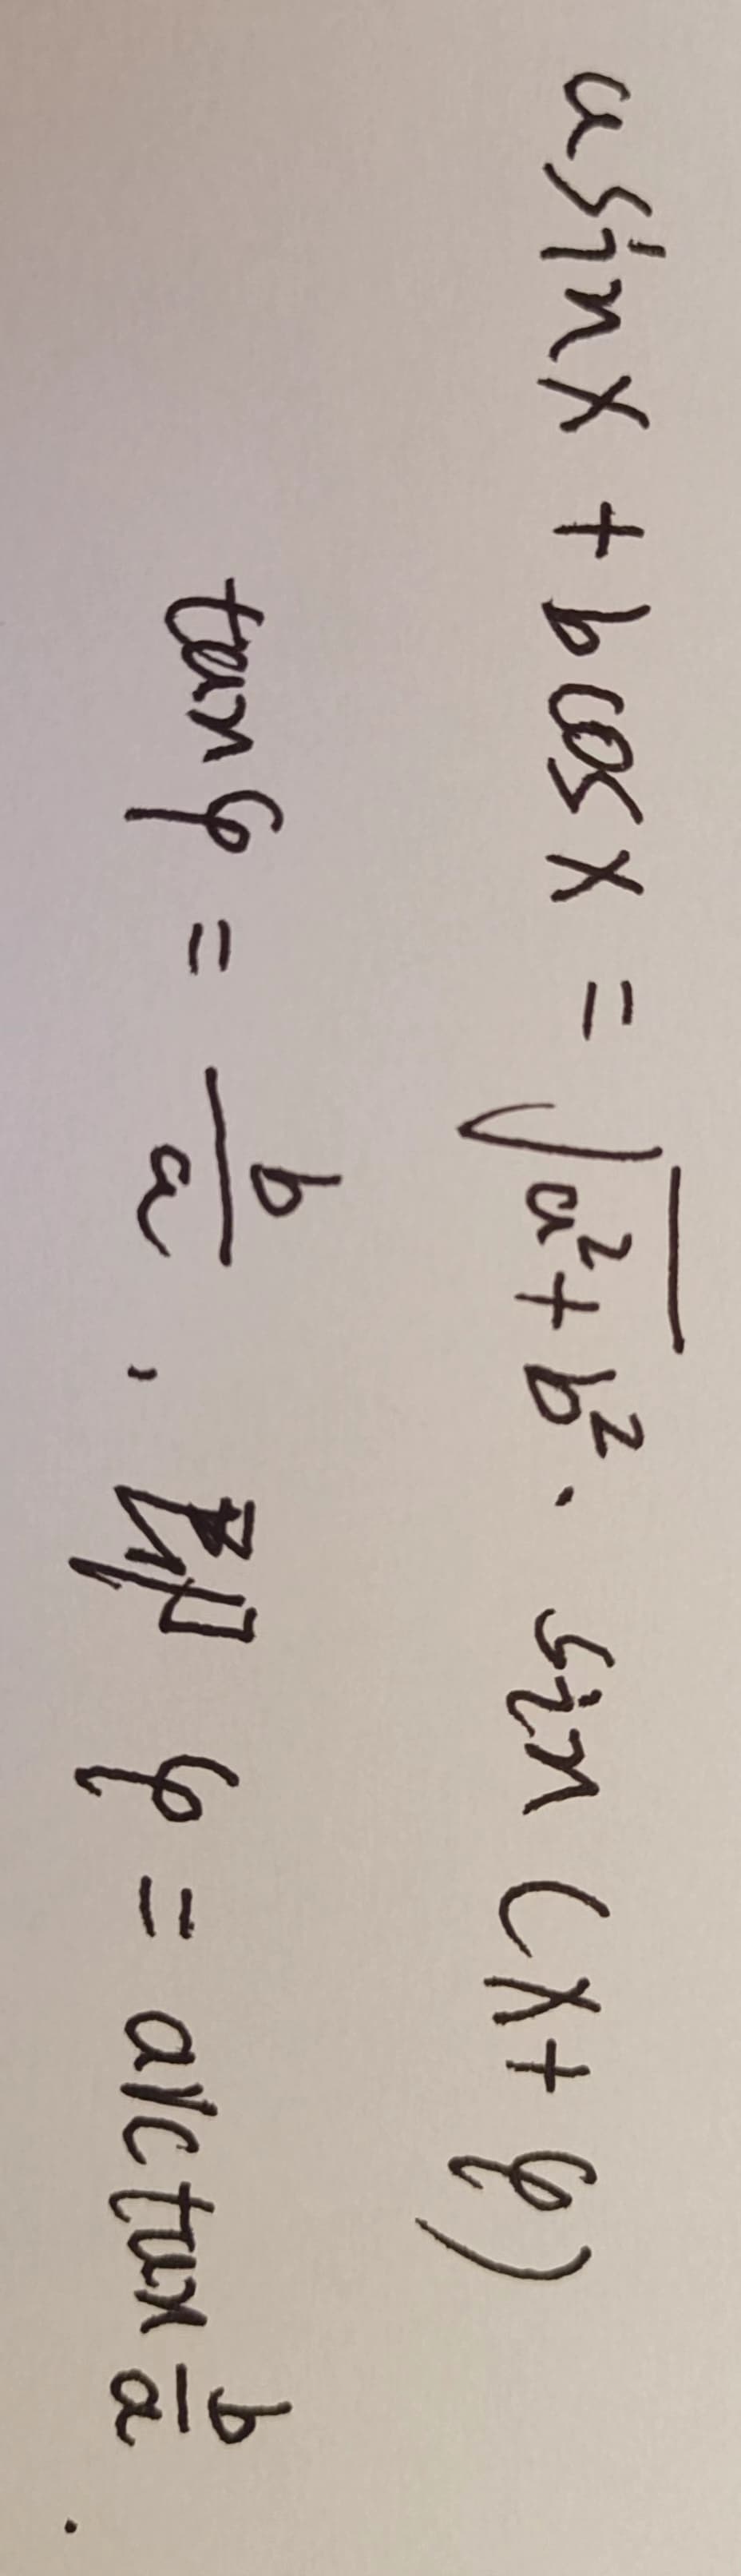 a sin x + b cos x = √(a²+b²) · sin (x + φ)
tan φ = b/a , 即 φ = arctan b/a .